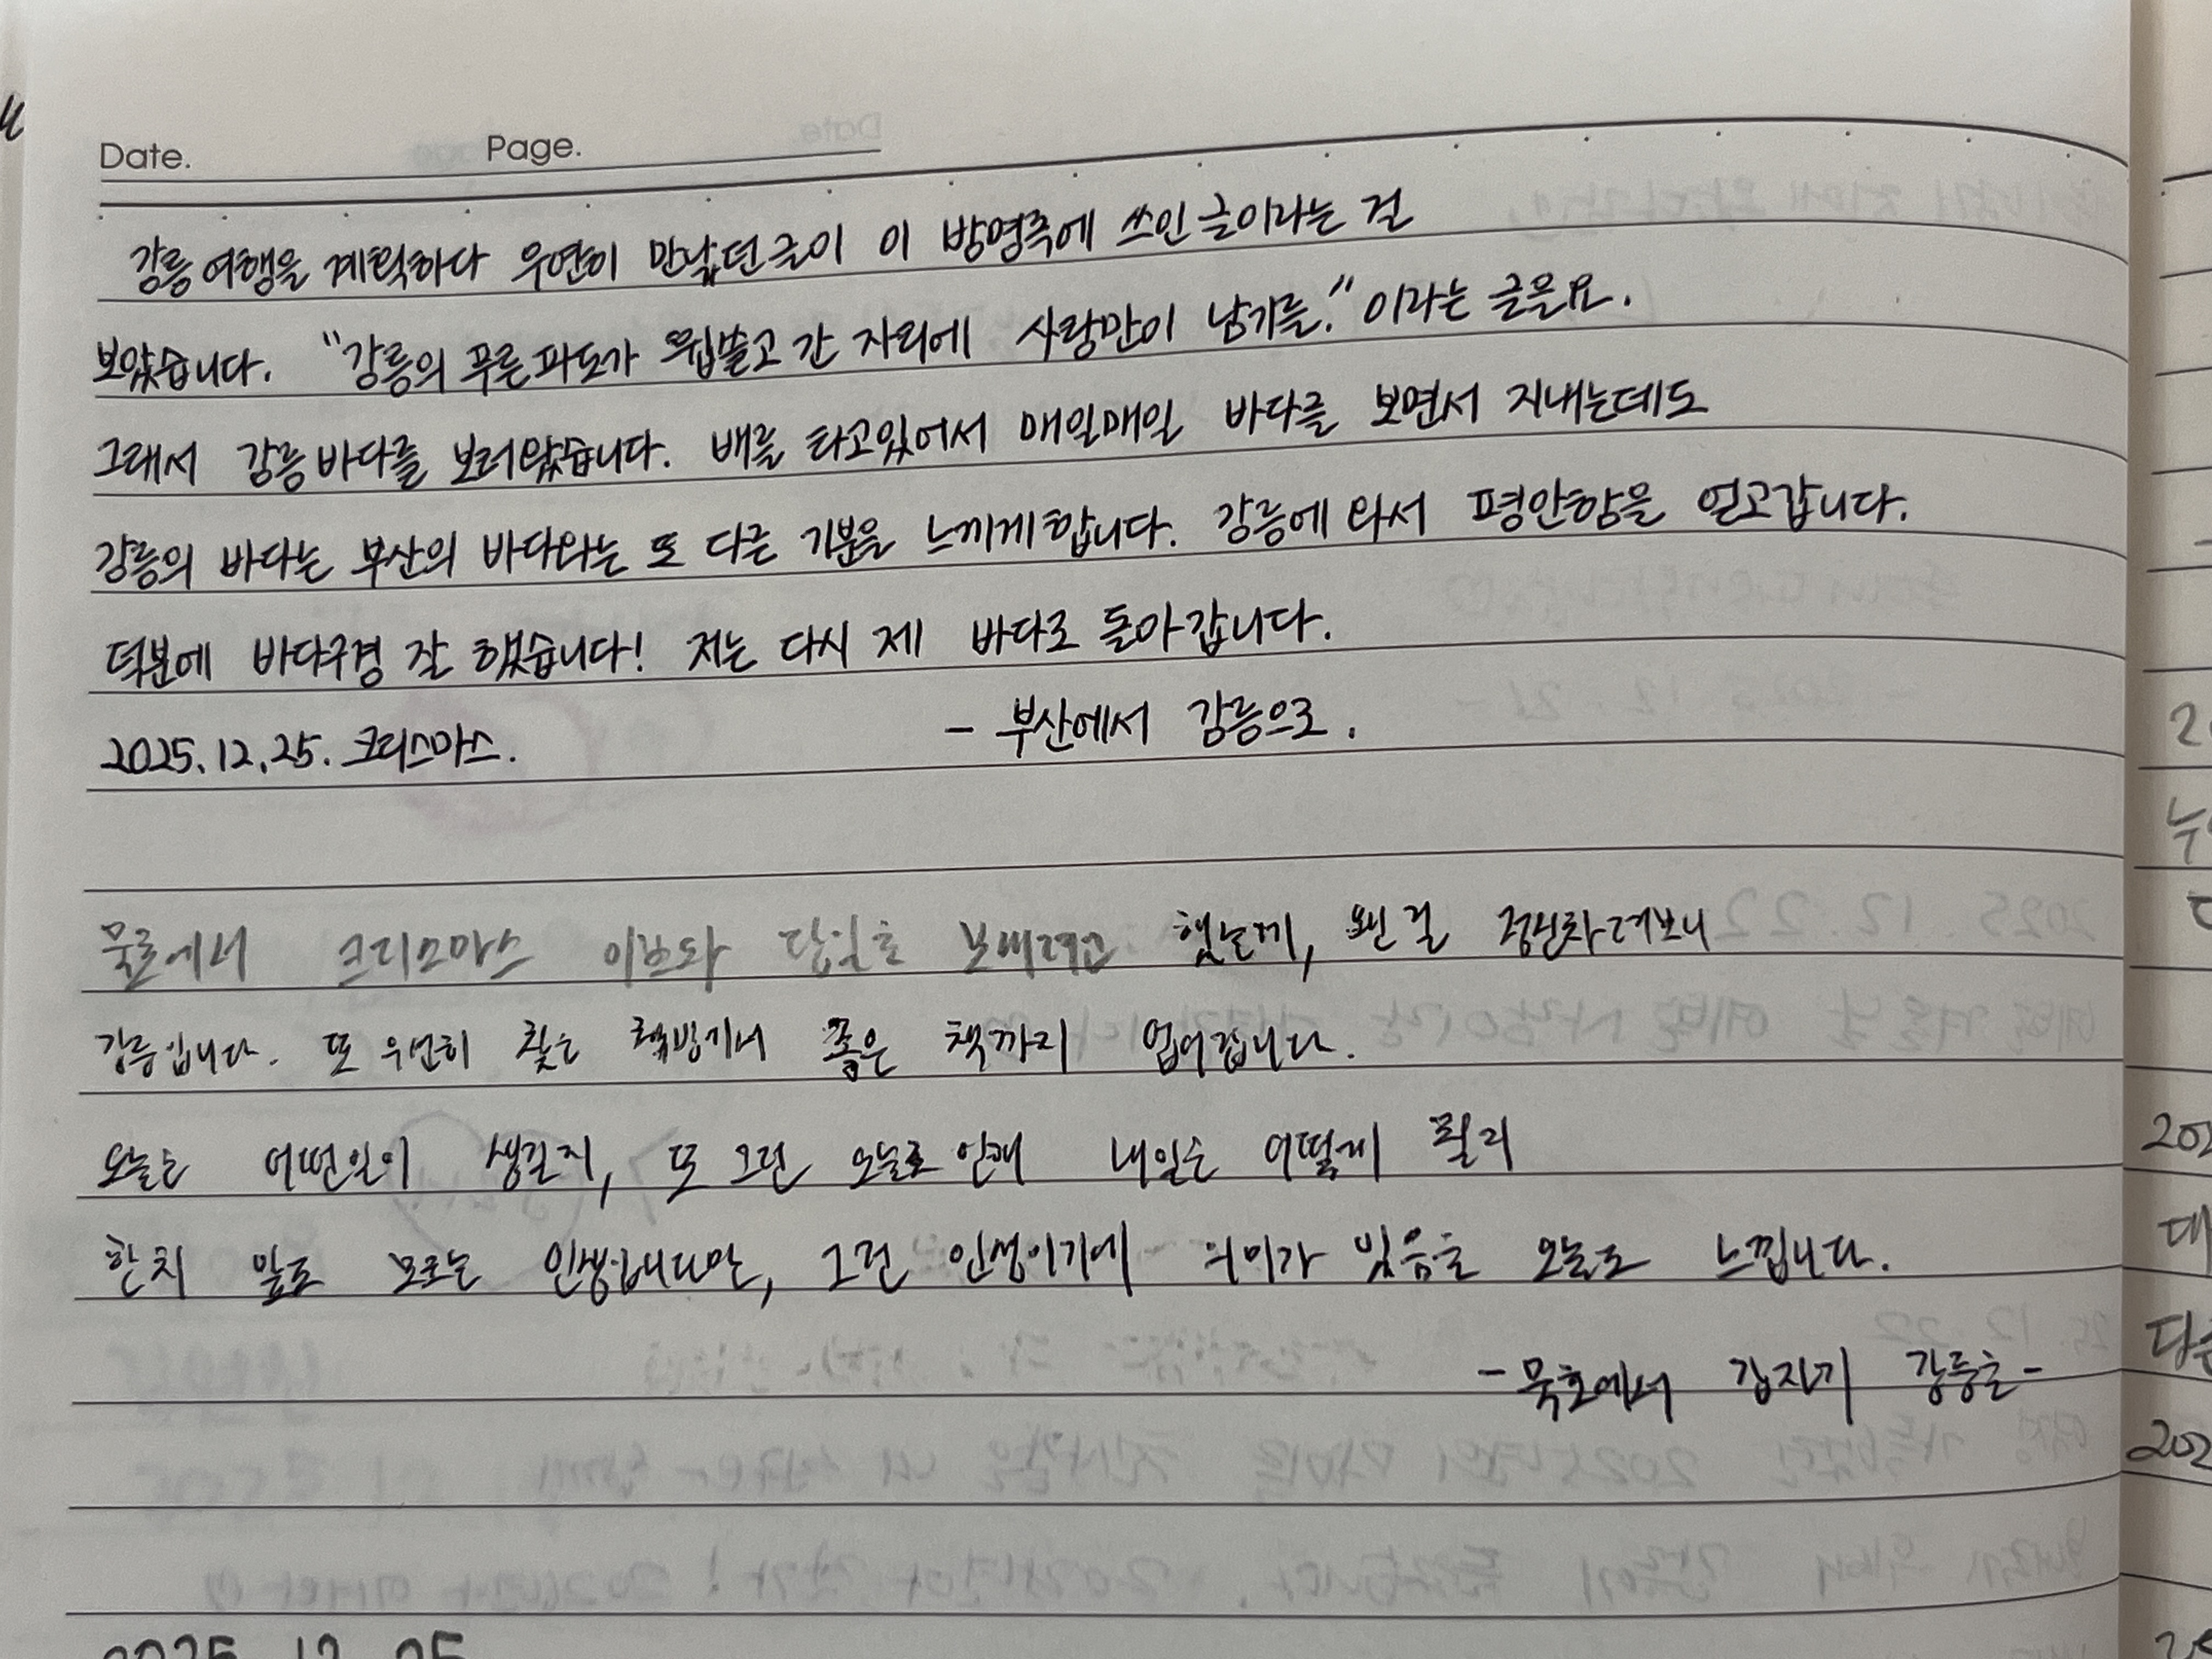 Date. Page.
강릉 여행을 계획하다 우연히 만났던 글이 이 방명록에 쓰인 글이라는 걸
보았습니다. "강릉의 푸른 파도가 휩쓸고 간 자리에 사랑만이 남기를." 이라는 글을요.
그래서 강릉 바다를 보러왔습니다. 배를 타고있어서 매일매일 바다를 보면서 지내는데도
강릉의 바다는 부산의 바다와는 또 다른 기분을 느끼게 합니다. 강릉에 와서 평안함을 얻고갑니다.
덕분에 바다구경 잘 했습니다! 저는 다시 제 바다로 돌아갑니다.
2025.12.25. 크리스마스. - 부산에서 강릉으로.
에서 크리스마스 이브와 당일을 보내려고 했는데, 왠걸 정신차려보니
강릉입니다. 또 우연히 찾은 책방에서 좋은 책까지 업어갑니다.
오늘은 어떤일이 생길지, 또 그런 오늘로 인해 내일은 어떻게 될지
한치 앞도 모르는 인생입니다만, 그런 인생이기에 의미가 있음을 오늘도 느낍니다.
- 묵호에서 갑자기 강릉을 -
2025 12 25